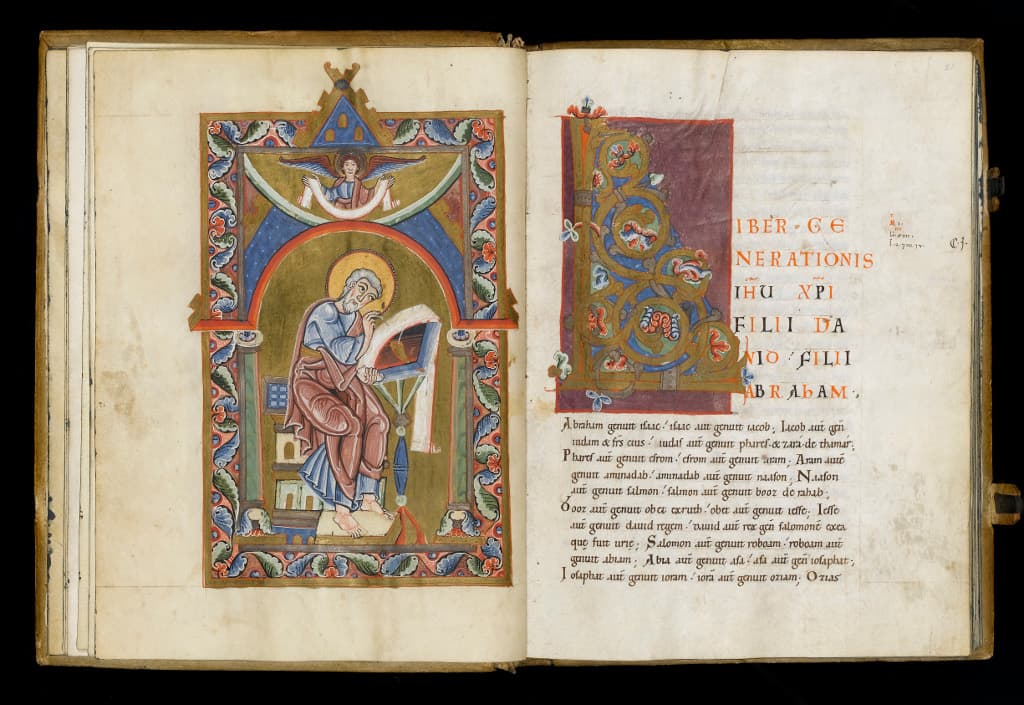 LIBER · GE
NERATIONIS
IHU XPI
FILII DA
VID : FILII
ABRAHAM ·
Abraham genuit isaac : isaac aut genuit iacob ; Iacob aut gen
iudam & frs eius : iudas aut genuit phares & zará de thamar ;
Phares aut genuit esrom : esrom aut genuit aram ; Aram aut
genuit aminadab : aminadab aut genuit naason ; Naason
aut genuit salmon : salmon aut genuit booz de rahab ;
Booz aut genuit obet exruth : obet aut genuit iesse ; Iesse
aut genuit dauid regem : dauid aut rex gen salomonē exea
que fuit urie ; Salomon aut genuit roboam : roboam aut
genuit abiam ; Abia aut genuit asa : asa aut gen iosaphat ;
Iosaphat aut genuit ioram : iorā aut genuit oziam ; Ozias